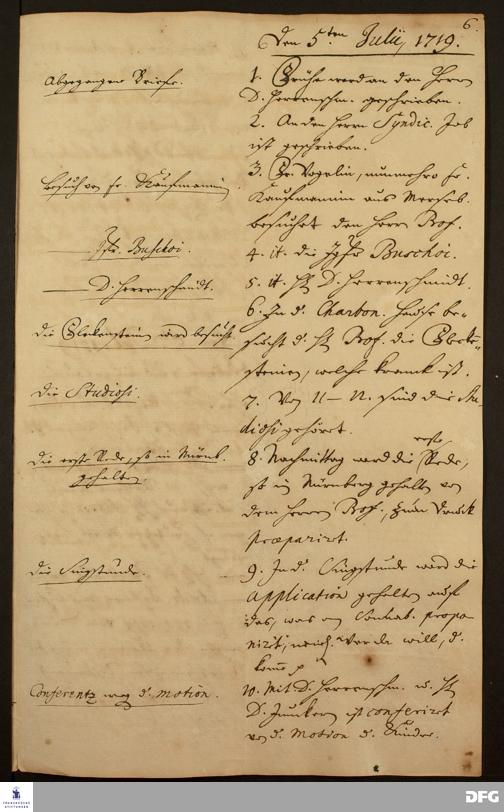 6.
Den 5ten Julii, 1719.
Abgegangene Briefe.
1. Frühe ward an den Herrn
D. Herrenschm. geschrieben.
2. An den Herrn Syndic.
ist geschrieben.
Besuch von Fr. Kaufmannin
3. Fr. Vogelin, nunmehro Fr.
Kaufmannin aus Merseb.
besuchet den Herrn Prof.
— Jfr. Buschoi.
4. it. die Jgfr Buschoi.
— D. Herrenschmidt.
5. it. H D. Herrenschmidt.
die wird besucht
6. In d. Charton. Hause be-
sucht d. H Prof. die
welche kranck ist.
die Studiosi.
7. Von 11 – 12. sind die Stu-
diosi gehöret.
die erste Rede, so in Nürnb.
gehalten.
8. Nachmittag ward die erste Rede,
so in Nürnberg gehalten von
dem Herrn Prof., zum Druck
præpariret.
die Singstunde.
9. In d. Singstunde ward die
application gehalten auf
das, was
will, d.
Conferentz weg d. motion.
10. Mit D. Herrenschm. u. H
D. Junkern ist conferiret
von d. Motion d. Kinder.
FRANCKESCHE
STIFTUNGEN
DFG